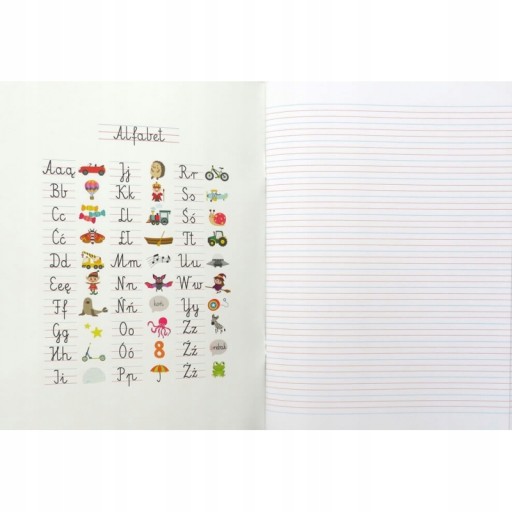 Alfabet
Aaą
Bb
Cc
Ćć
Dd
Eeę
Ff
Gg
Hh
Ii
Jj
Kk
Ll
Łł
Mm
Nn
Ńń
koń
Oo
Óó
8
Pp
Rr
Ss
Śś
Tt
Uu
Ww
Yy
Zz
Źź
Żż